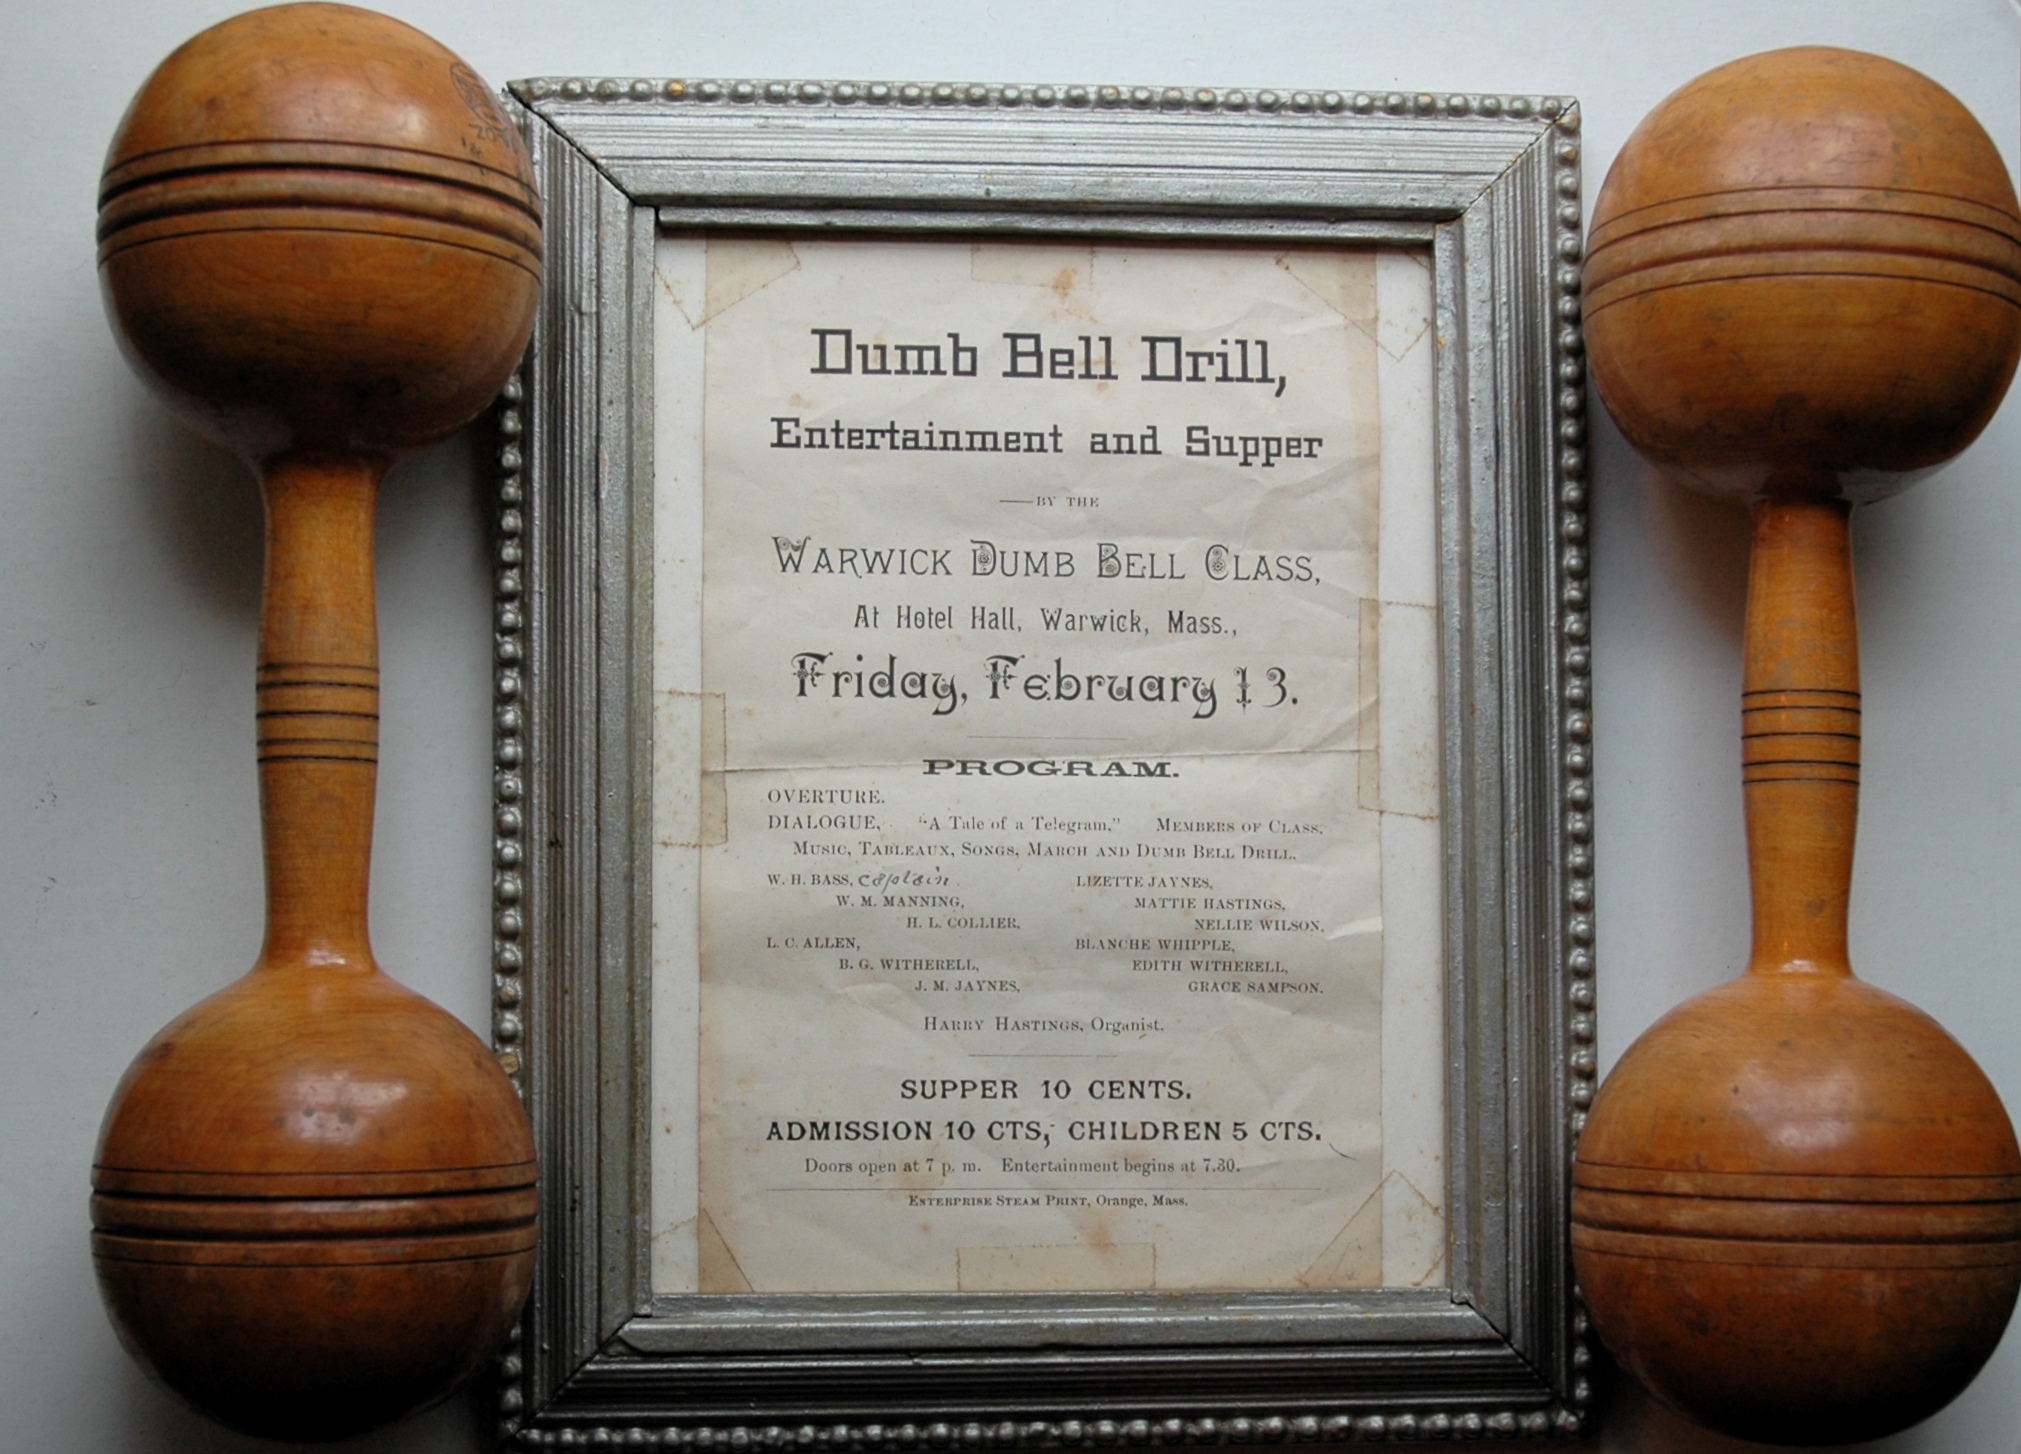 Dumb Bell Drill,
Entertainment and Supper
BY THE
WARWICK DUMB BELL CLASS,
At Hotel Hall, Warwick, Mass.,
Friday, February 13.
PROGRAM.
OVERTURE.
DIALOGUE, "A Tale of a Telegram," MEMBERS OF CLASS.
MUSIC, TABLEAUX, SONGS, MARCH AND DUMB BELL DRILL.
W. H. BASS, captain. LIZETTE JAYNES,
W. M. MANNING, MATTIE HASTINGS,
H. L. COLLIER, NELLIE WILSON,
L. C. ALLEN, BLANCHE WHIPPLE,
B. G. WITHERELL, EDITH WITHERELL,
J. M. JAYNES, GRACE SAMPSON.
HARRY HASTINGS, Organist.
SUPPER 10 CENTS.
ADMISSION 10 CTS, CHILDREN 5 CTS.
Doors open at 7 p. m. Entertainment begins at 7.30.
ENTERPRISE STEAM PRINT, Orange, Mass.